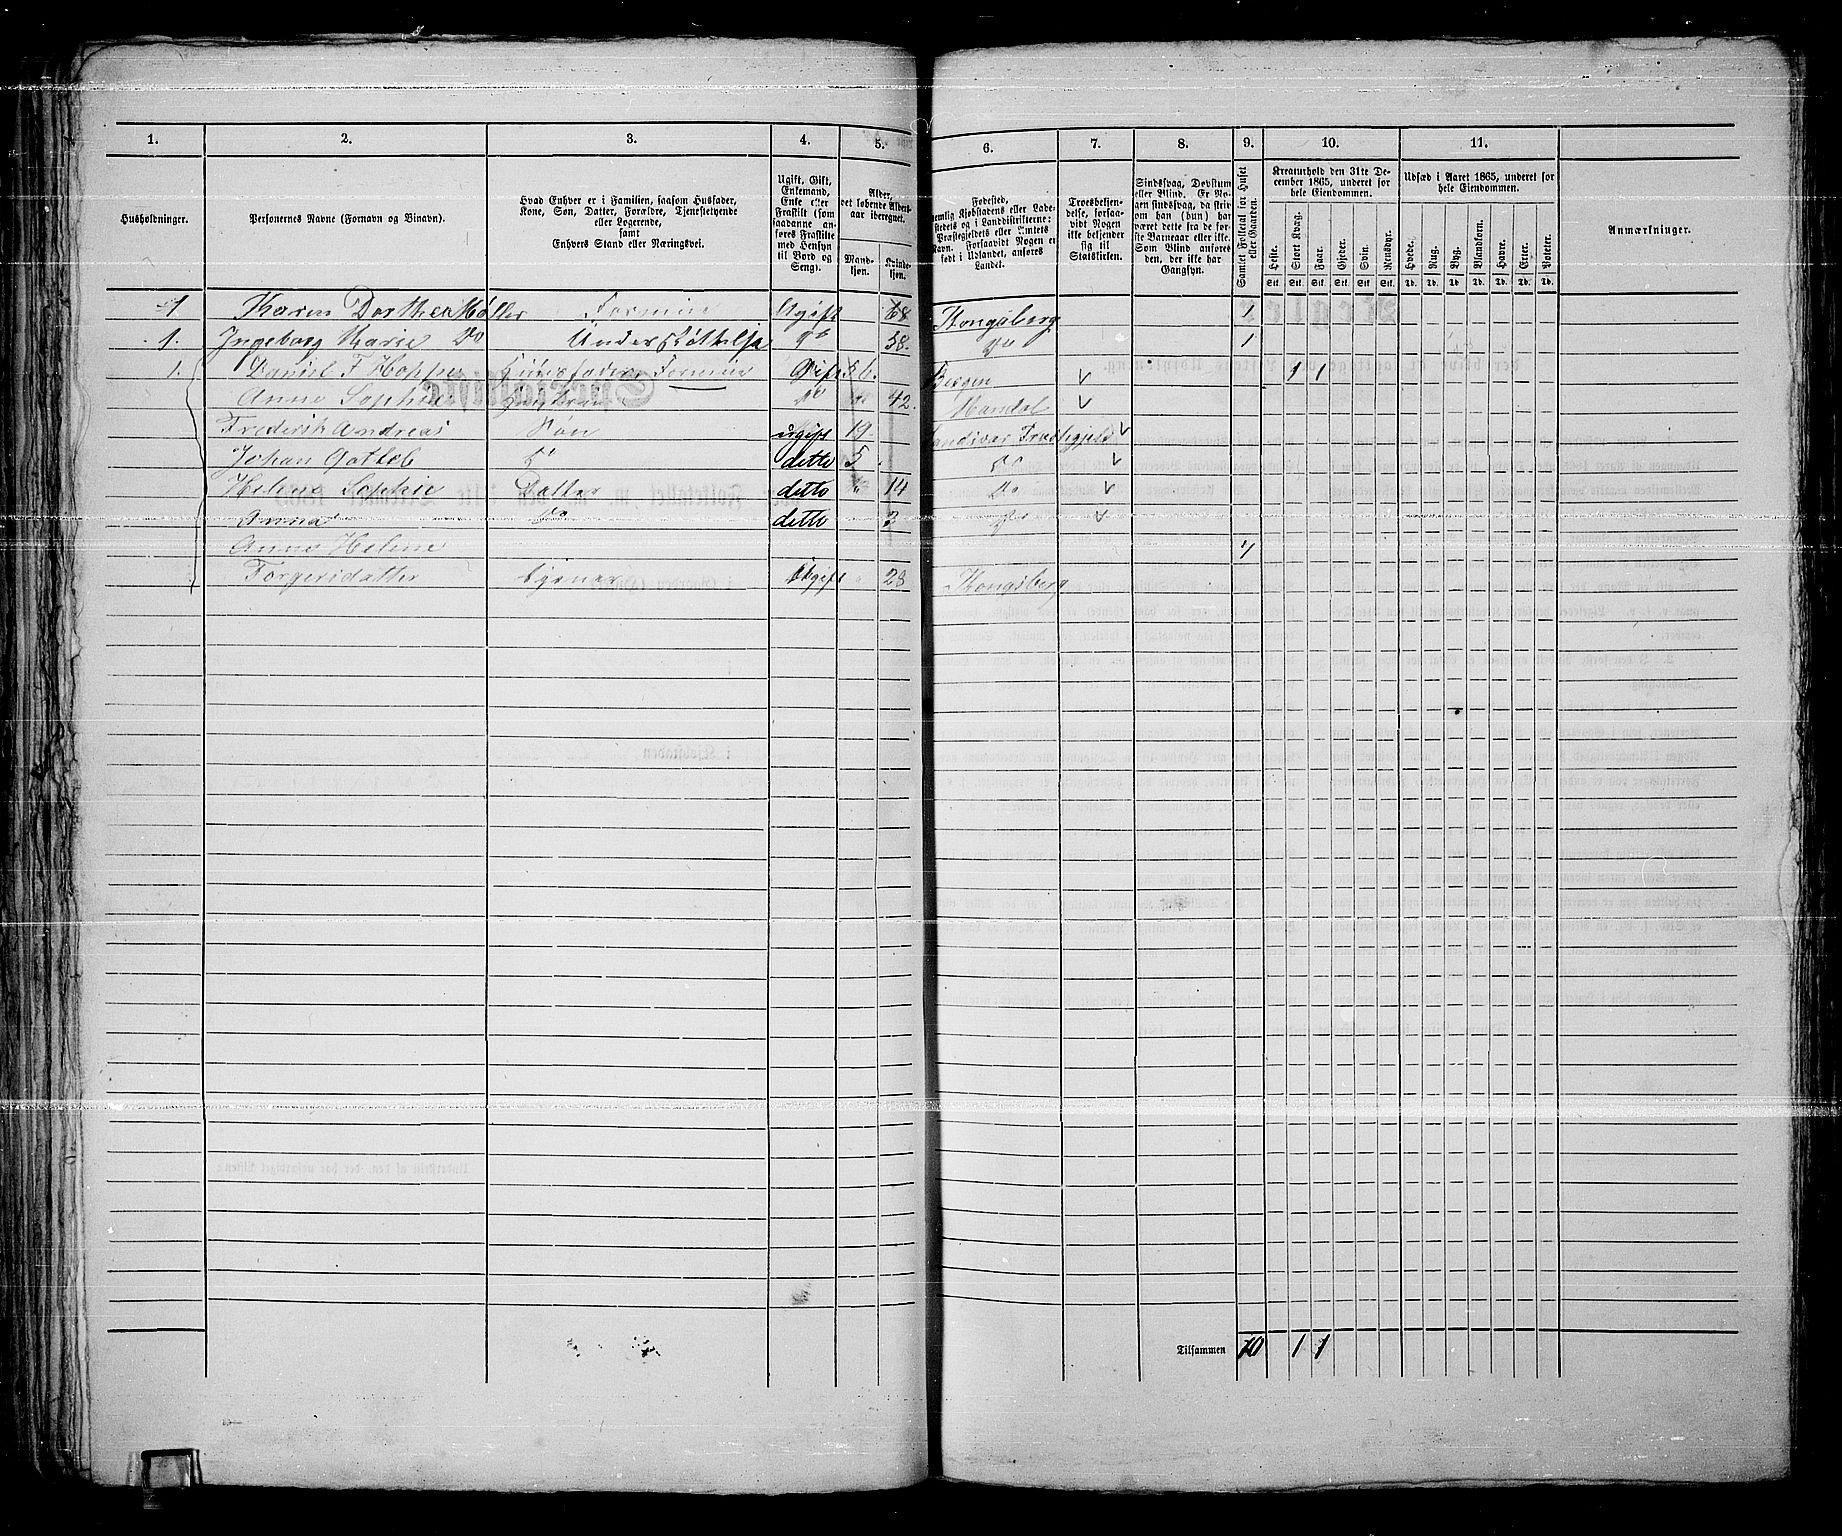 1. 2. 3. 4. 5. 6. 7. 8. 9. 10. 11.
Husholdninger.
Personernes Navne (Fornavn og Binavn).
Hvad Enhver er i Familien, saasom Husfader,
Kone, Søn, Datter, Forældre, Tjenestetyende
eller Logerende,
samt
Enhvers Stand eller Næringsvei.
Ugift, Gift,
Enkemand,
Enke eller
Fraskilt (som
saadanne an-
føres Fraskilte
med Hensyn
til Bord og
Seng).
Alder,
det løbende Alders-
aar iberegnet.
Mand-
kjøn.
Kvinde-
kjøn.
Fødested,
nemlig Kjøbstadens eller Lade-
stedets og i Landdistrikterne:
Præstegjeldets eller Amtets
Navn. Forsaavidt Nogen er
født i Udlandet, anføres
Landet.
Troesbekjen-
delse, forsaa-
vidt Nogen
ikke bekjender
sig til
Statskirken.
Sindssvag, Døvstum
eller Blind. Er No-
gen sindssvag, da skriv
om han (hun) har
været dette fra de før-
ste Barneaar eller ikke.
Som Blind anføres
den, der ikke har
Gangsyn.
Samlet Folketal for Huset
eller Gaarden.
Kreaturhold den 31te De-
cember 1865, underet for
hele Eiendommen.
Heste. Stort Kvæg. Faar. Gjeder. Svin. Rensdyr.
Stk. Stk. Stk. Stk. Stk. Stk.
Udsæd i Aaret 1865, underet for
hele Eiendommen.
Hvede. Rug. Byg. Blandkorn. Havre. Erter. Poteter.
Td. Td. Td. Td. Td. Td. Td.
Anmærkninger.
1 Karen Dorthea Møller Ugift 68 Kongsberg 1
1. Ingeborg Marie Do Do 58. Do 1
1. Daniel F Hoppe Gift 56. Bergen 1 1
Anne Sophie Do 42. Mandal
Frederik Andreas Søn ugift 19 Præstegjeld
Johan Gotleb Do detto 5 Do
Helene Sophie Datter detto 14 Do
Anna Do detto 3 Do
Anne Helene
Torgersdatter Ugift 28 Kongsberg
Tilsammen 10 1 1